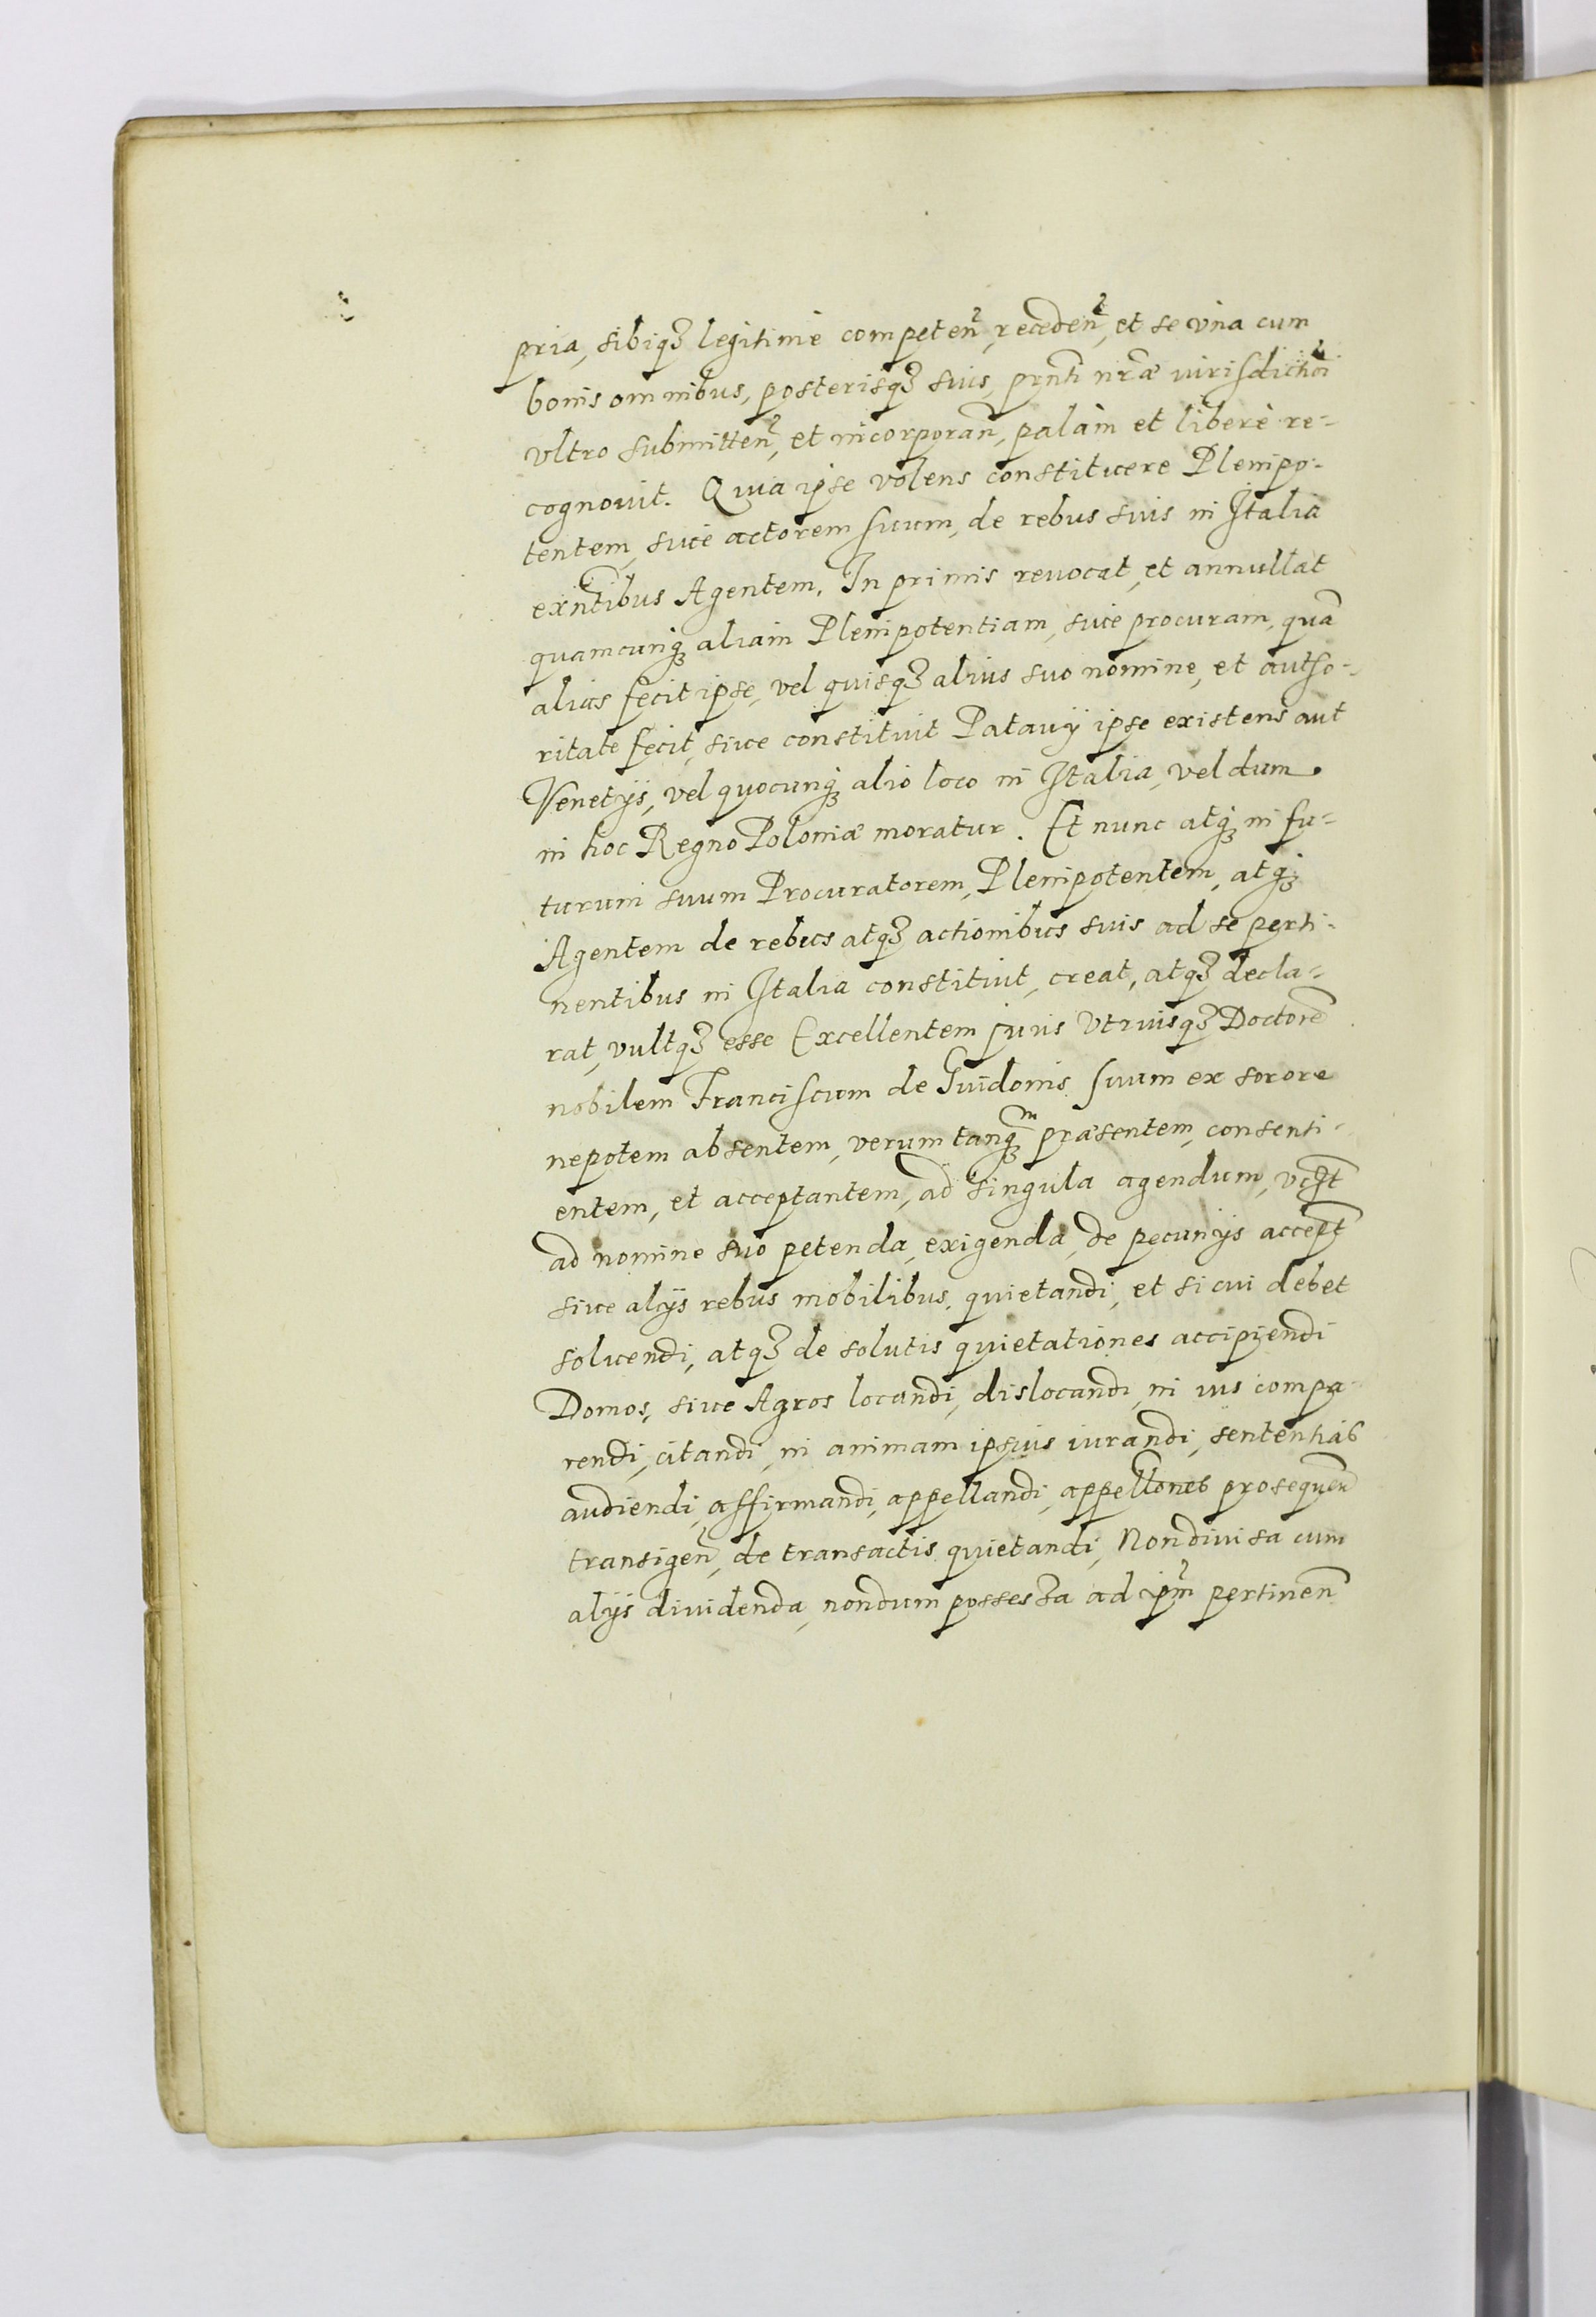 pria, sibiqȝ legitimè competeñ, recedeñ, et se vna cum
bonis omnibus, posterisqȝ suis, prnti nr̃æ iurisdictioi
vltro submitteñ, et incorporañ, palàm et liberè re-
cognouit. Quia ipse volens constituere Plenipo-
tentem, siue actorem suum, de rebus suis in Italia
exñtibus Agentem. In primis reuocat, et annullat
quamcunqȝ aliam Plenipotentiam, siue procuram, quã
alias fecit ipse, vel quisqȝ alius suo nomine, et autho-
ritate fecit, siue constituit Patauij ipse existens aut
Venetijs, vel quocunqȝ alio loco in Italia, vel dum
in hoc Regno Poloniæ moratur. Et nunc atqȝ in fu-
turum suum Procuratorem, Plenipotentem, atqȝ
Agentem de rebus atqȝ actionibus suis ad se perti-
nentibus in Italia constituit, creat, atqȝ decla-
rat, vultqȝ esse Excellentem juris Vtriusqȝ Doctorẽ
nobilem Franciscum de Guidonis suum ex sorore
nepotem absentem, verum tanqȝm præsentem, consenti-
entem, et acceptantem, ad singula agendum, vcꝫt
ad nomine suo petenda, exigenda, de pecunijs accept̃
siue alijs rebus mobilibus, quietandi, et si cui debet
soluendi, atqȝ de solutis quietationes accipiendi
Domos, siue Agros locandi, dislocandi, in ius compa-
rendi, citandi, in animam ipsius iurandi, sententias
audiendi, affirmandi, appellandi, appellones prosequeñ
transigeñ, de transactis quietandi, Non diuisa cum
alijs diuidenda, nondum possessa ad ip̃m pertineñ